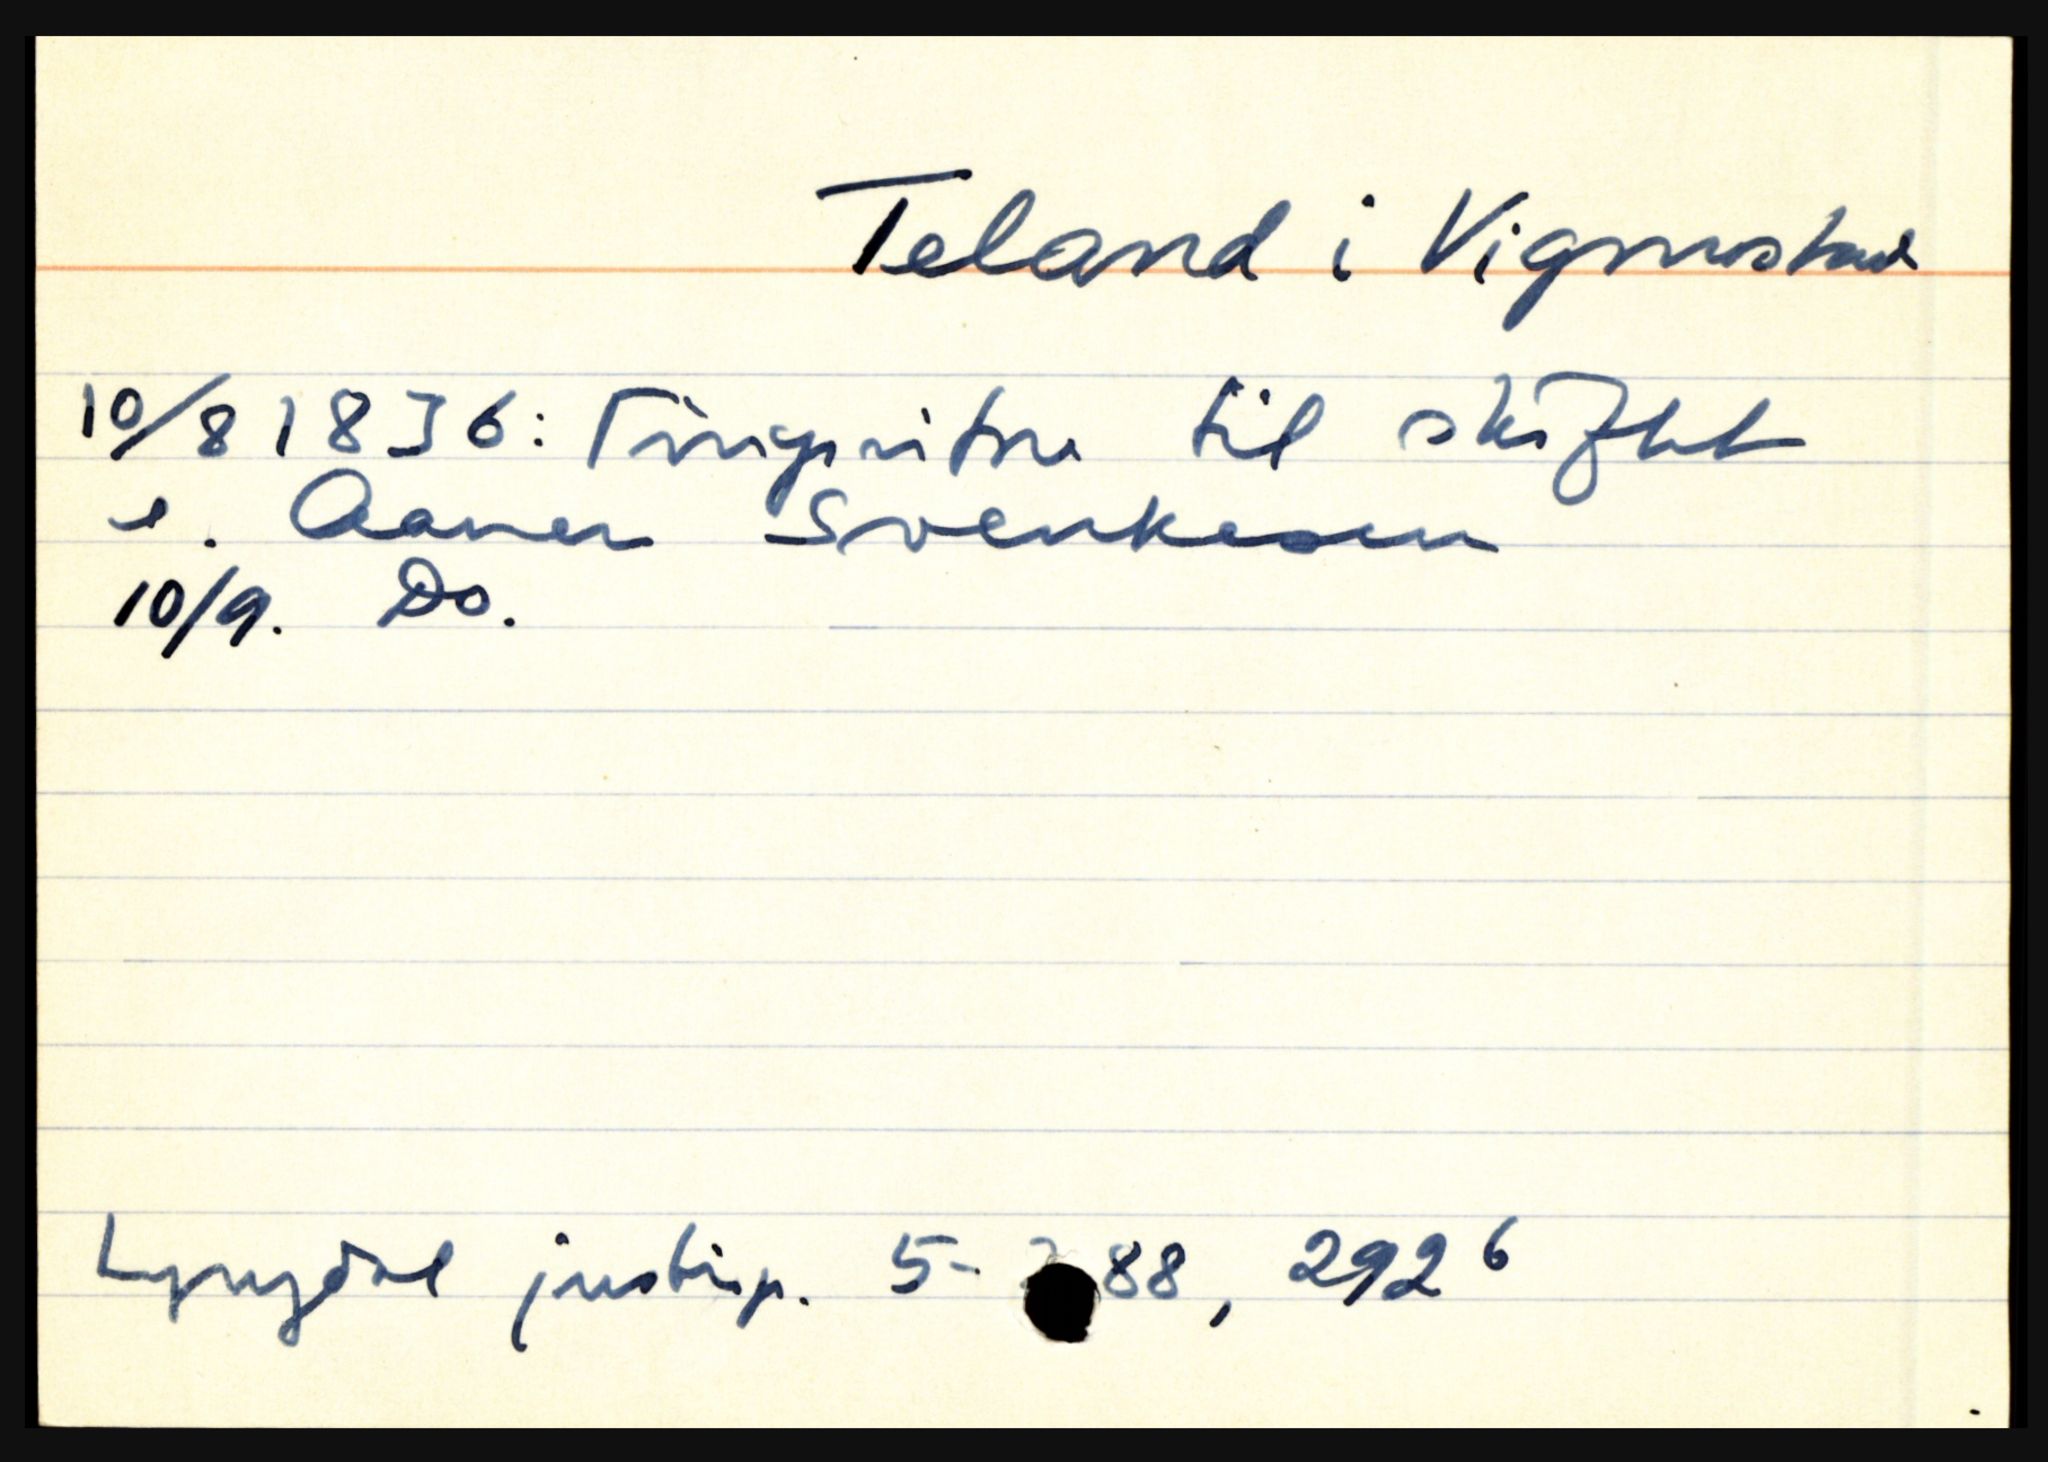 Teland i Vigmostad
10/8 1836: Tingsvitne til skiftet
e. Aanen Svenkesen
10/9. Do.
Lyngdal justisp. 5- 288, 292 6